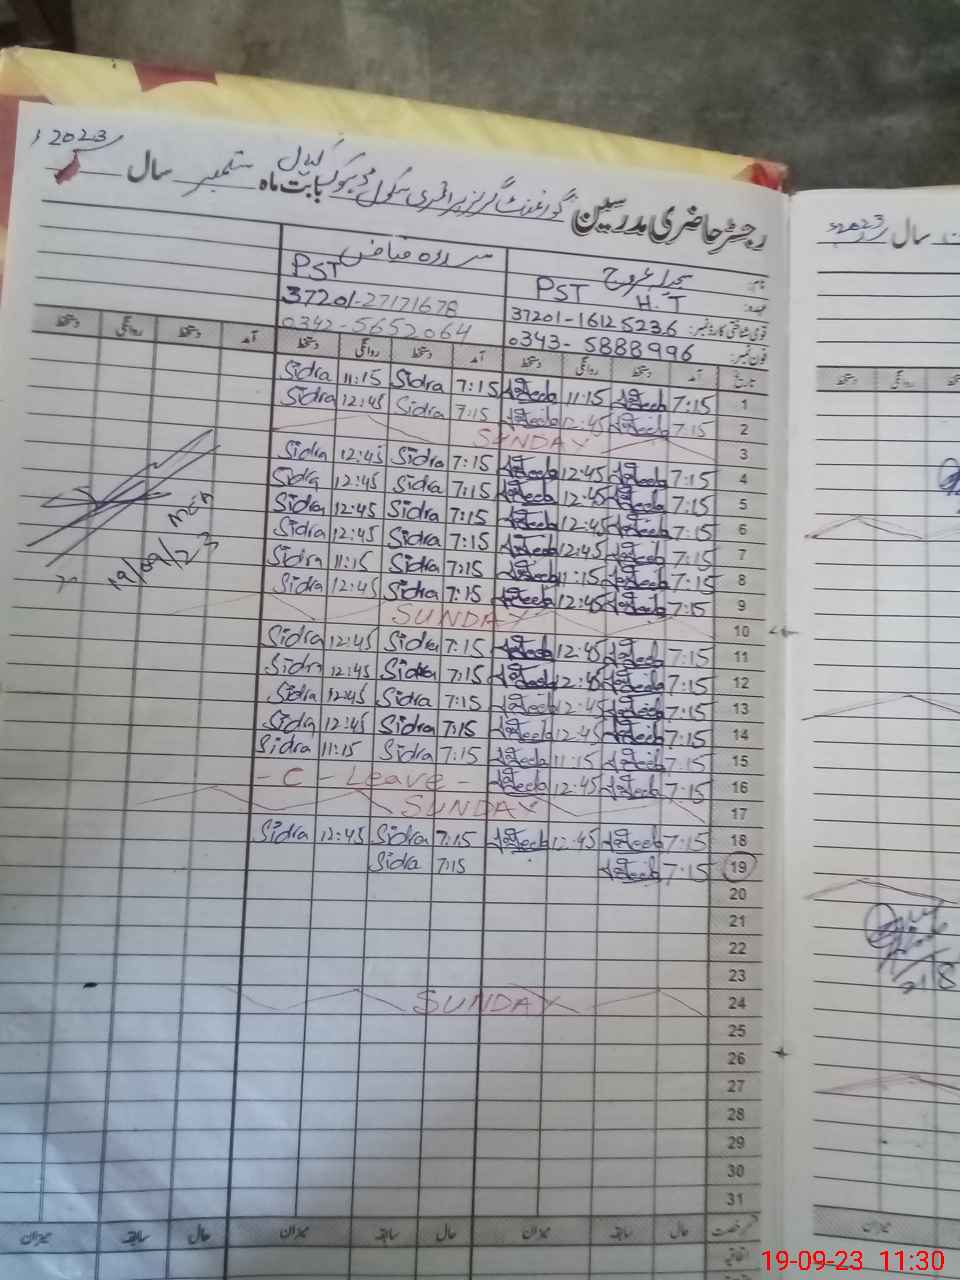 2023
رجسٹر حاضری مدرسین گورنمنٹ گرلز پرائمری سکول بابت ماہ ستمبر سال
نام:
عہدہ: PST H.T PST
قومی شناختی کارڈ نمبر: 37201-16125236 37201-27171678
فون نمبر: 0343-5888996 0342-5652064
تاریخ آمد دستخط روانگی دستخط آمد دستخط روانگی دستخط آمد دستخط روانگی دستخط
1 7:15 11:15 7:15 Sidra 11:15 Sidra
2 7:15 12:45 7:15 Sidra 12:45 Sidra
3 SUNDAY
4 7:15 12:45 7:15 Sidra 12:45 Sidra
5 7:15 12:45 7:15 Sidra 12:45 Sidra
6 7:15 12:45 7:15 Sidra 12:45 Sidra
7 7:15 12:45 7:15 Sidra 12:45 Sidra
8 7:15 11:15 7:15 Sidra 11:15 Sidra
9 7:15 12:45 7:15 Sidra 12:45 Sidra
10 SUNDAY
11 7:15 12:45 7:15 Sidra 12:45 Sidra
12 7:15 12:45 7:15 Sidra 12:45 Sidra
13 7:15 12:45 7:15 Sidra 12:45 Sidra
14 7:15 12:45 7:15 Sidra 12:45 Sidra
15 7:15 11:15 7:15 Sidra 11:15 Sidra
16 7:15 12:45 - C - Leave -
17 SUNDAY
18 7:15 12:45 7:15 Sidra 12:45 Sidra
19 7:15 7:15 Sidra
20
21
22
23
24 SUNDAY
25
26
27
28
29
30
31
رخصت حال سابقہ میزان حال سابقہ میزان حال سابقہ میزان
اتفاقیہ
19/09/23
2023 سال
دستخط روانگی
میزان
19-09-23 11:30